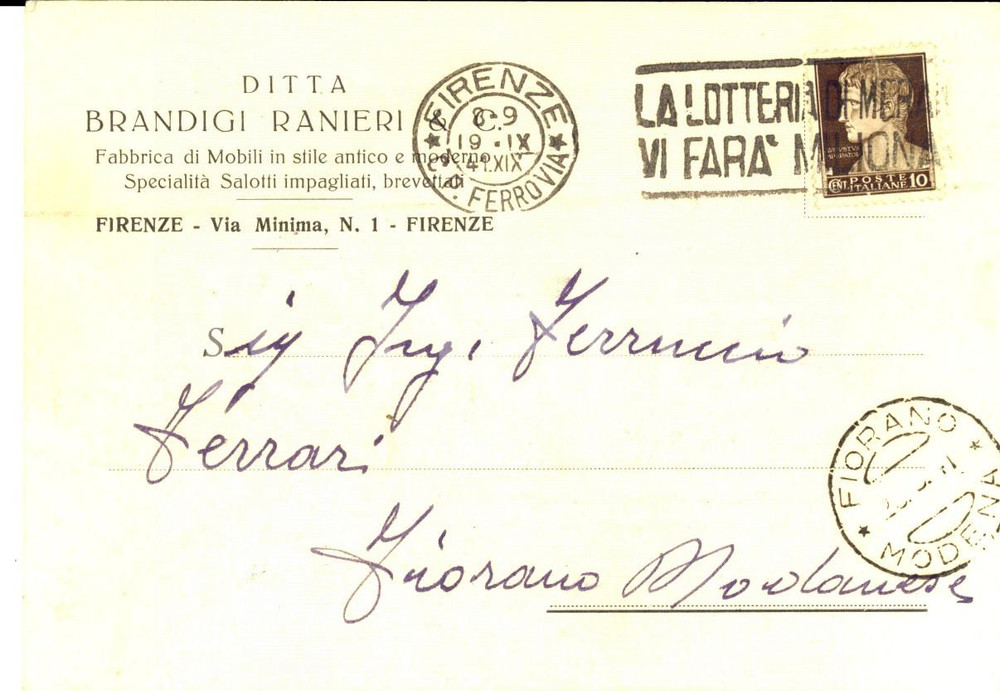 DITTA
BRANDIGI RANIERI & C.
Fabbrica di Mobili in stile antico e moderno
Specialità Salotti impagliati, brevettati
FIRENZE - Via Minima, N. 1 - FIRENZE
FIRENZE
8-9
19 . IX
41.XIX
FERROVIA
LA LOTTERIA DI MERA
VI FARA' MILIONA
CENT. POSTE ITALIANE 10
Sig Ing. Ferruccio
Ferrari
Fiorano Modanese
FIORANO
MODENA